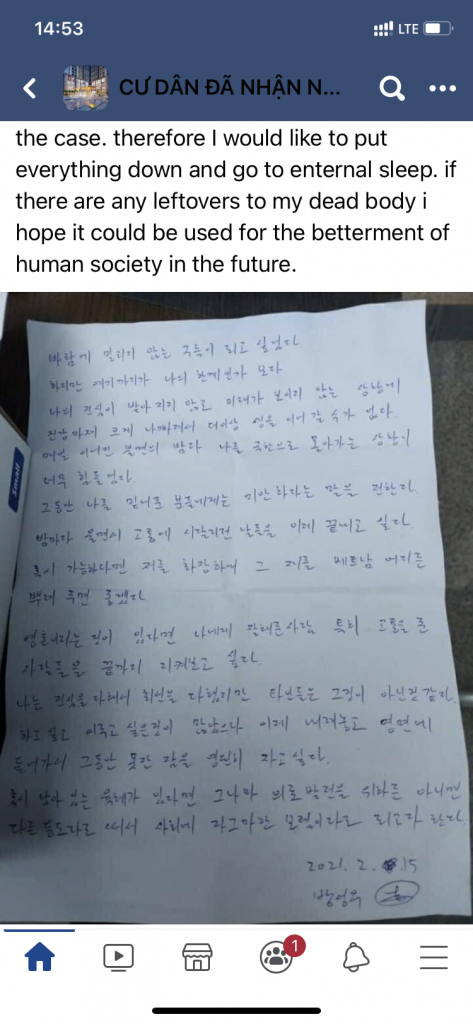 14:53
LTE
CƯ DÂN ĐÃ NHẬN N...
the case. therefore I would like to put
everything down and go to enternal sleep. if
there are any leftovers to my dead body i
hope it could be used for the betterment of
human society in the future.
바람에 밀리지 않는 구름이 되고 싶었다
하지만 여기까지가 나의 한계인가 보다
나의 진심이 받아지지 않고 미래가 보이지 않는 상황에
건강마저 크게 나빠져서 더이상 삶을 이어갈 수가 없다.
매일 이어진 불면의 밤과 나를 극한으로 몰아가는 상황이
너무 힘들었다.
그동안 나를 믿어준 분들에게는 미안하다는 말을 전한다.
밤마다 울면서 고통에 시달리던 날들을 이제 끝내고 싶다
혹시 가능하다면 저를 화장하여 그 재를 베트남 어디든
뿌려 주면 좋겠다
영혼이라는 것이 있다면 나에게 사람 특히 고통을 준
사람들을 끝까지 지켜보고 싶다.
나는 진심을 다해서 최선을 다했지만 타인들은 그것이 아닌것 같다.
하고 싶고 이루고 싶은것이 많았으나 이제 내려놓고 영면에
들어가서 그동안 못잔 잠을 영원히 자고싶다.
혹시 남아 있는 육체가 있다면 그나마 의료발전을 위하든 아니면
다른 용도라도 써서 사회에 자그마한 보탬이라도 되고자 한다.
2021. 2. 15
1